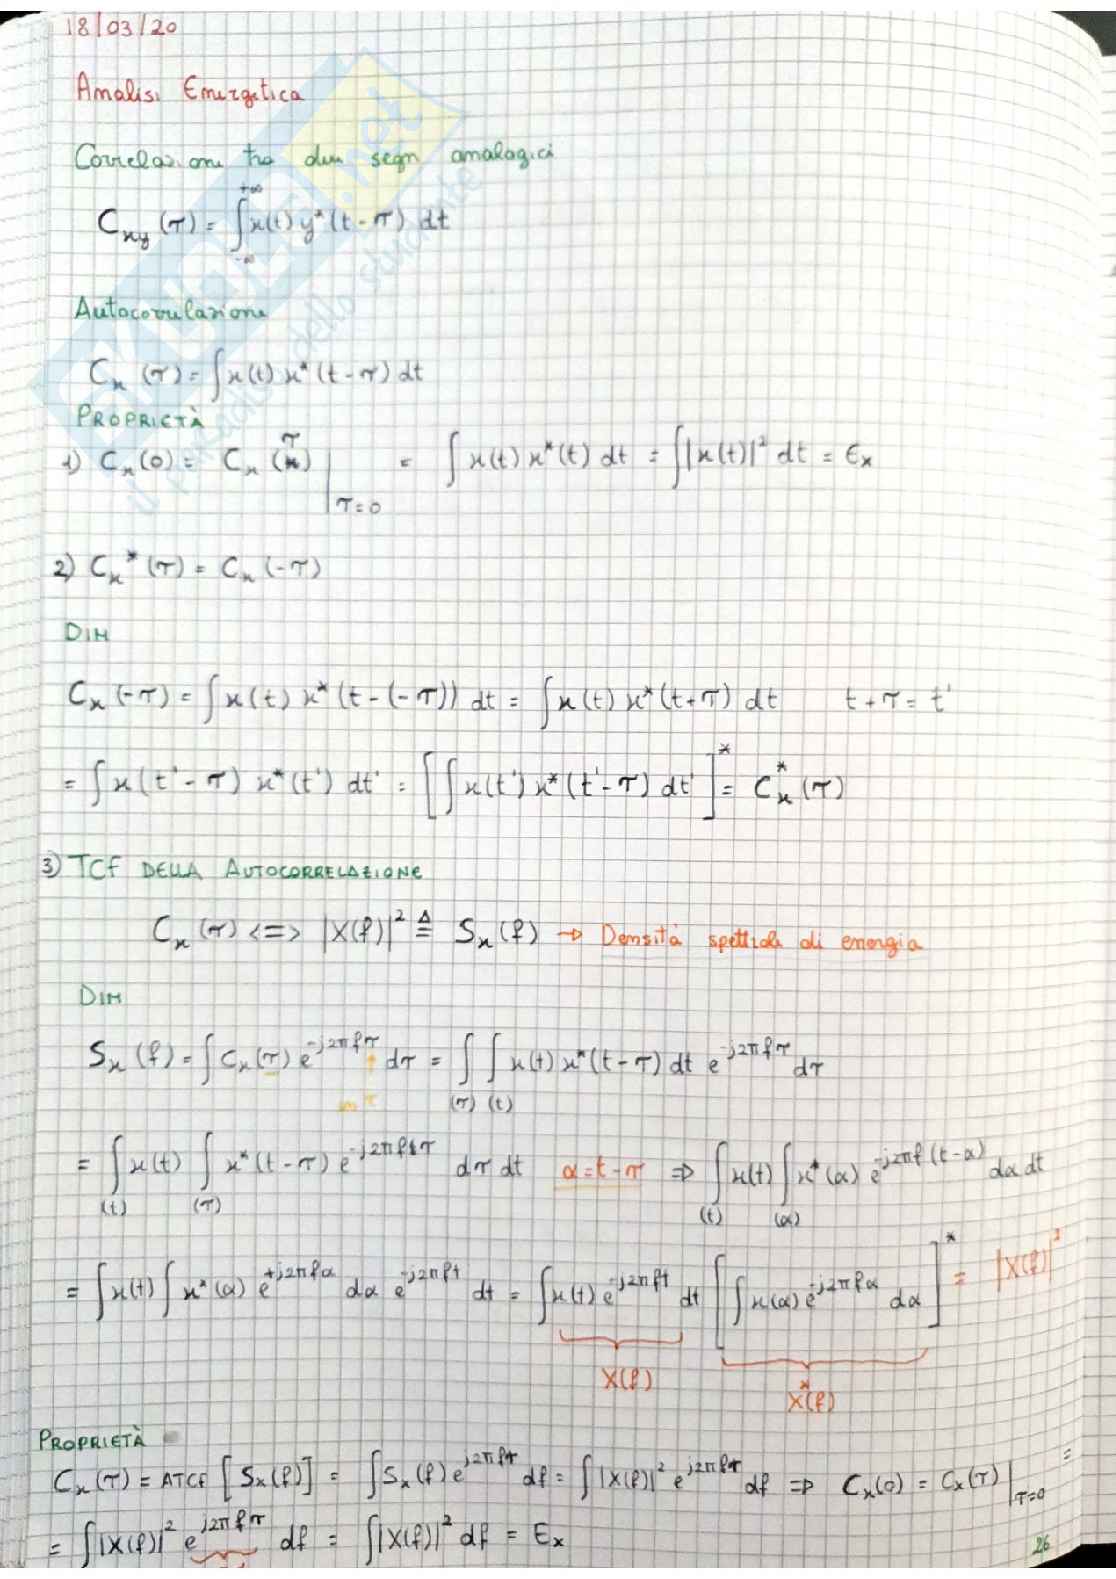 18/03/20
Analisi Energetica
Correlazione tra due segn analogici
C_xy (τ) = ∫_{-∞}^{+∞} x(t) y*(t-τ) dt
Autocorrelazione
C_x (τ) = ∫ x(t) x*(t-τ) dt
PROPRIETÀ
1) C_x(0) = C_x(τ)|_{τ=0} = ∫ x(t) x*(t) dt = ∫ |x(t)|² dt = E_x
2) C_x*(τ) = C_x(-τ)
DIM
C_x(-τ) = ∫ x(t) x*(t-(-τ)) dt = ∫ x(t) x*(t+τ) dt t+τ = t'
= ∫ x(t'-τ) x*(t') dt' = [∫ x(t') x*(t'-τ) dt']* = C_x*(τ)
3) TCF DELLA AUTOCORRELAZIONE
C_x(τ) <=> |X(f)|² ≜ S_x(f) → Densità spettrale di energia
DIM
S_x(f) = ∫ C_x(τ) e^{-j2πfτ} dτ = ∫_{(τ)} ∫_{(t)} x(t) x*(t-τ) dt e^{-j2πfτ} dτ
= ∫_{(t)} x(t) ∫_{(τ)} x*(t-τ) e^{-j2πfτ} dτ dt α = t-τ ⇒ ∫_{(t)} x(t) ∫_{(α)} x*(α) e^{-j2πf(t-α)} dα dt
= ∫ x(t) ∫ x*(α) e^{+j2πfα} dα e^{-j2πft} dt = ∫ x(t) e^{-j2πft} dt [∫ x(α) e^{-j2πfα} dα]* = |X(f)|²
X(f) X*(f)
PROPRIETÀ
C_x(τ) = ATCF [S_x(f)] = ∫ S_x(f) e^{j2πfτ} df = ∫ |X(f)|² e^{j2πfτ} df ⇒ C_x(0) = C_x(τ)|_{τ=0} =
= ∫ |X(f)|² e^{j2πfτ} df = ∫ |X(f)|² df = E_x
26